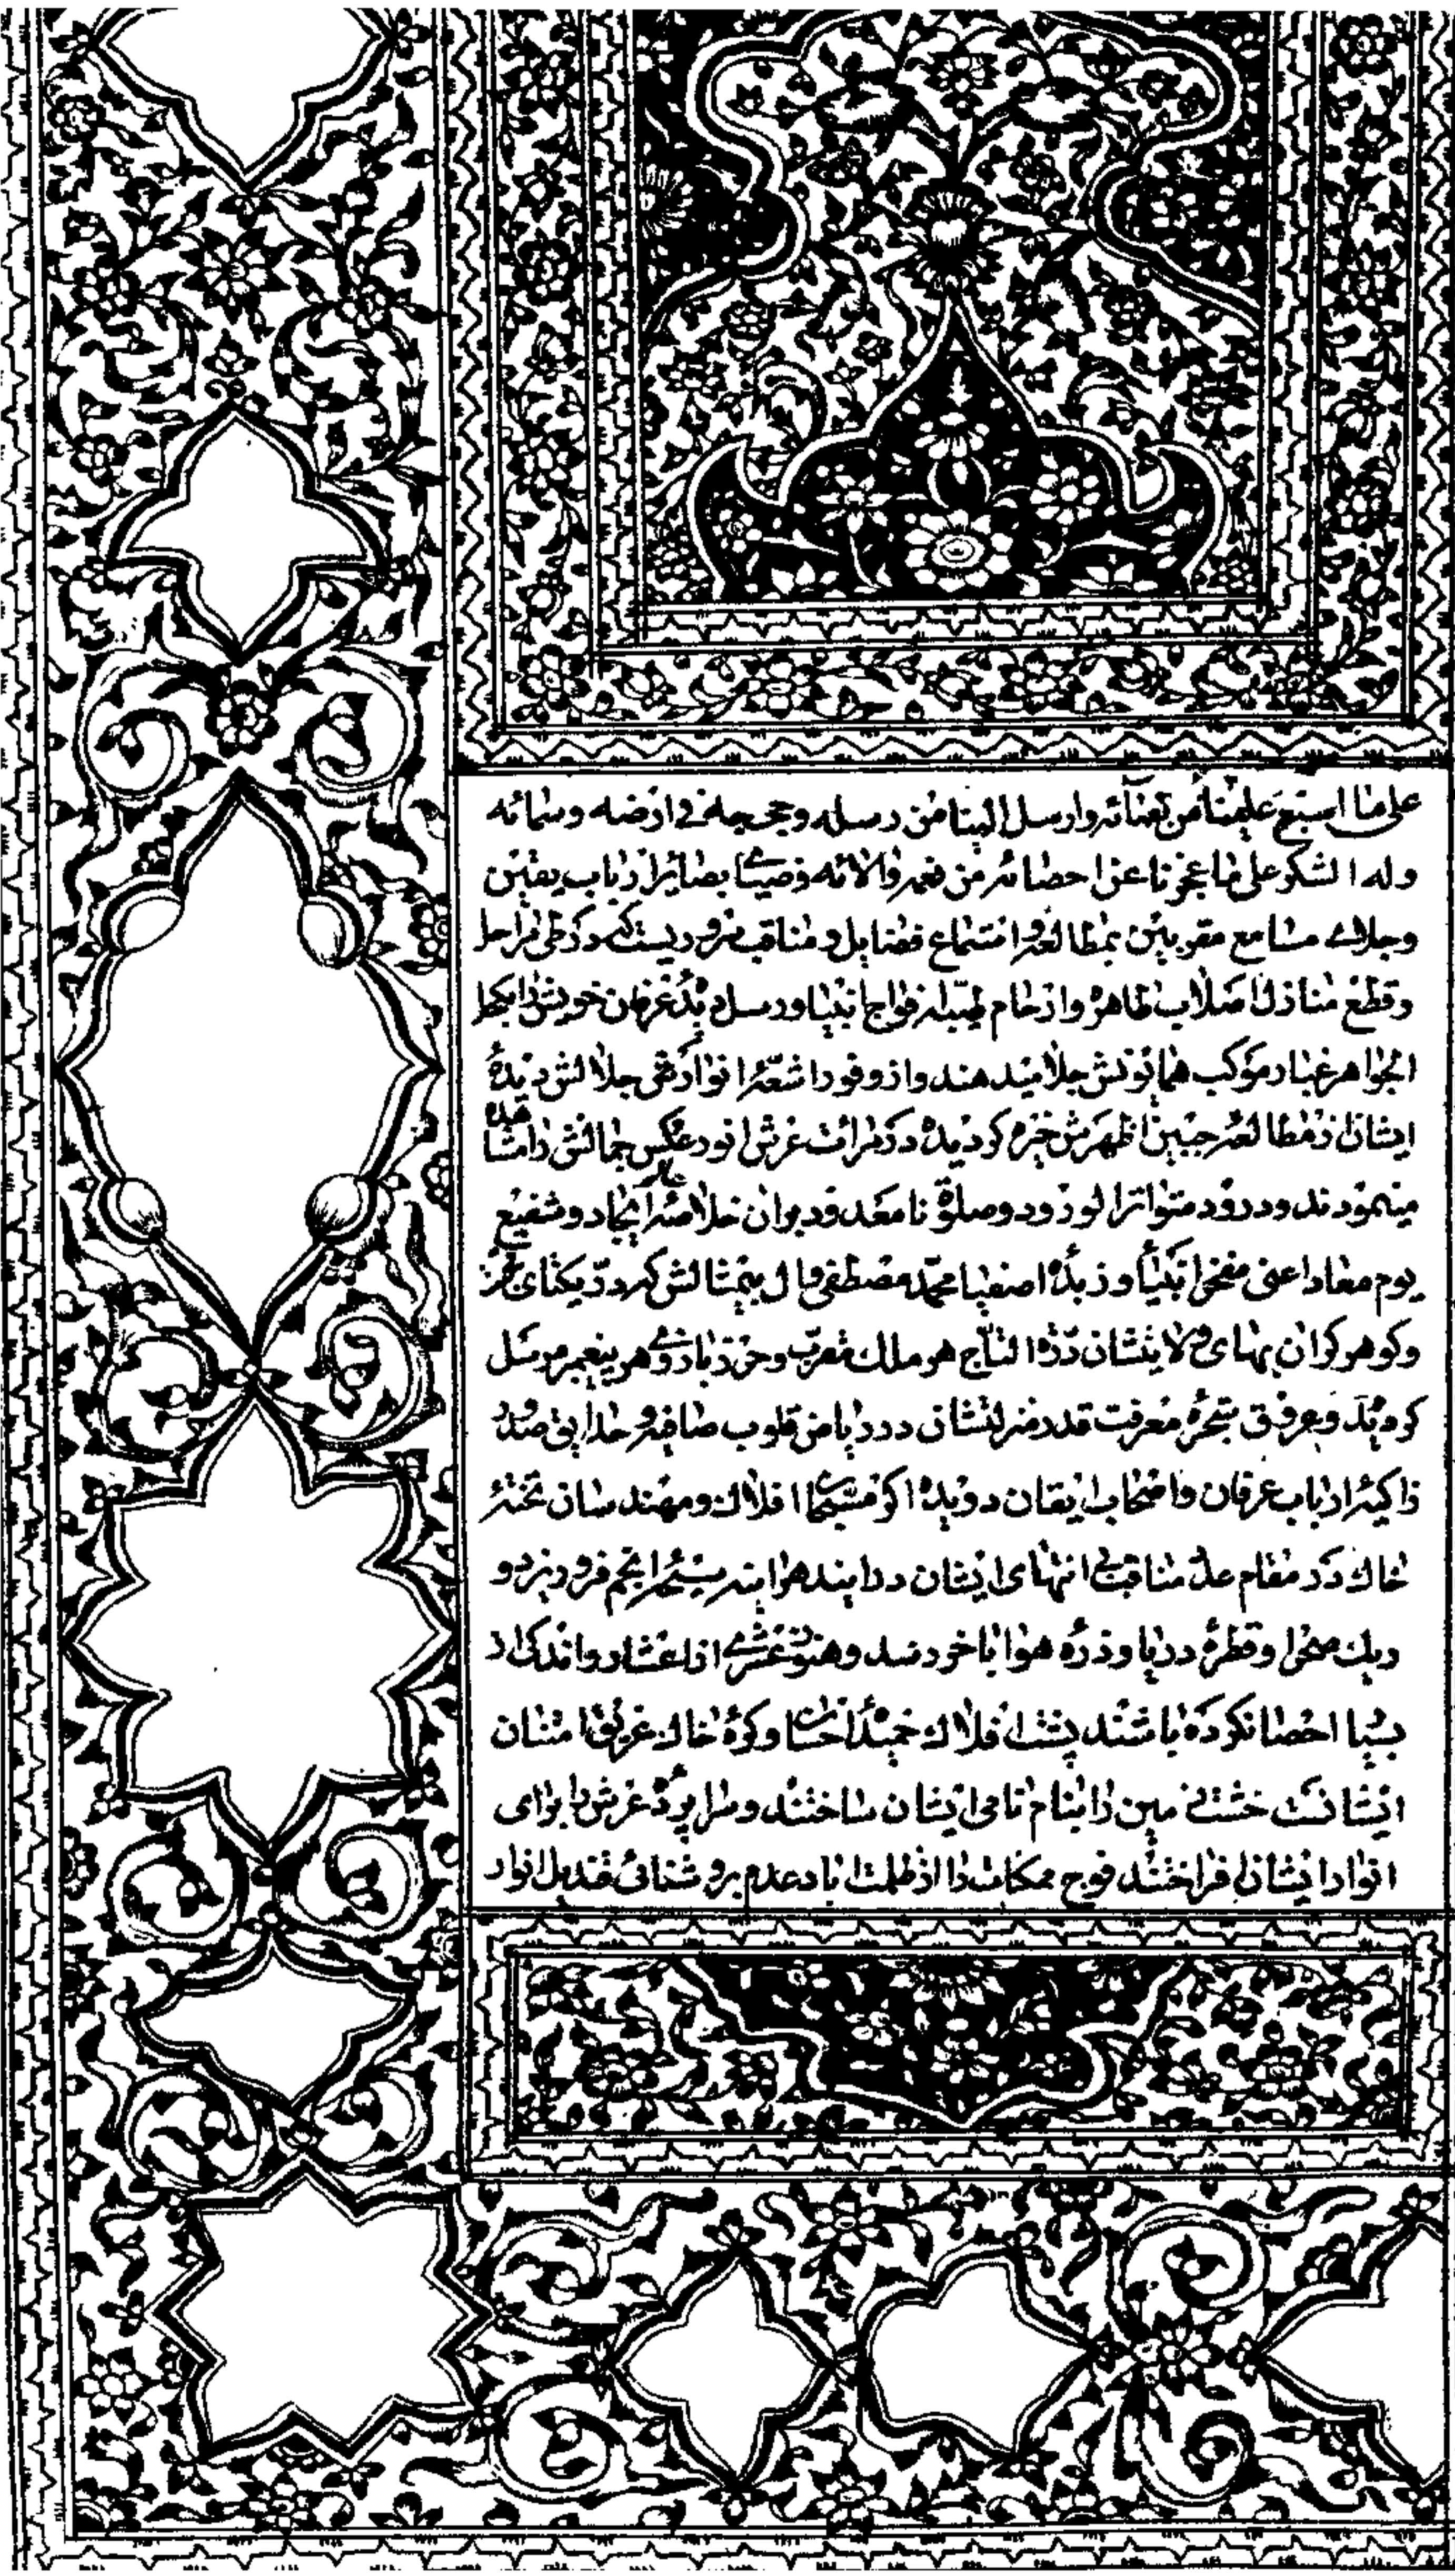 علی ما اسبغ علینا من نعمآئه وارسل الینا من رسله و حججه فی ارضه و سمائه
وله الشکر علی ما عجزنا عن احصائه من نعمه والائه وضیای بصایر ارباب یقین
و جلای مسامع مقربین بمطالعه و استماع فضایل و مناقب سروریست که در طی مراحل
و قطع منازل اصلاب طاهره و ارحام طیبه افواج انبیا و رسل دیده عرفان خویش را بکحل
الجواهر غبار موکب همایونش جلا میدهند و از وفور اشعه انوار شمس جلالش دیده
ایشان از مطالعه جبین اظهرش خیره کردیده در مرات عرش انور عکس جمالش را مشاهده
مینمودند و درود متواتر الورود و صلوة نامعدود بران خلاصه ایجاد و شفیع
یوم معاد اعنی مفخر انبیا و زبده اصفیا محمد مصطفی و ال بیمثالش که در یکتای
و کوهر کران بهای ولایتشان درة التاج هر ملک مقرب و حرز بازوی هر پیغمبر مرسل
کردیده و عروق شجره معرفت قدر منزلتشان در ریاض قلوب صافیه و حدایق صدور
زاکیه ارباب عرفان و اصحاب ایقان دویده اکر مسبحان افلاک و مهندسان تخته
خاک در مقام عد مناقب بی انتهای ایشان درایند هر اینه سبحه انجم فرو ریزد و
ریک صحرا و قطره دریا و ذره هوا باخر رسد و هنوز عشری از اعشار و اندکی از
بسیار احصا نکرده باشند پشت افلاک خمیده احسان و کره خاک غریق امتنان
ایشانست خشت زمین را بنام نامی ایشان ساختند و سراپرده عرش را برای
انوار ایشان افراختند فوج ممکنات را از ظلمت اباد عدم بروشنائی قندیل انوار